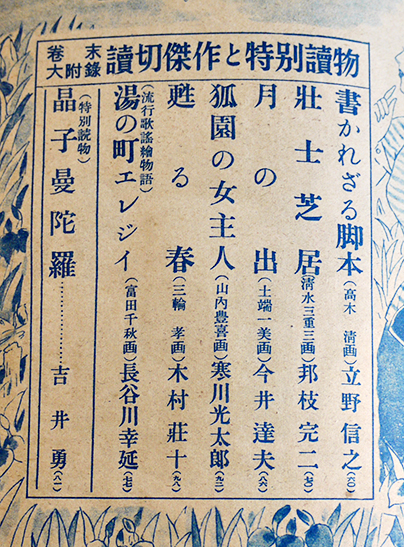 讀切傑作と特別讀物
卷末
大附錄
書かれざる脚本(高木 清画)立野信之(六〇)
壯士芝居(清水三重三画)邦枝完二(七〇)
月の出(土端一美画)今井達夫(八六)
狐園の女主人(山内豊喜画)寒川光太郎(九二)
甦る春(三輪 孝画)木村莊十(九八)
(流行歌謠繪物語)
湯の町エレジイ(富田千秋画)長谷川幸延(七七)
(特別読物)
晶子曼陀羅…………………吉井勇(八一)